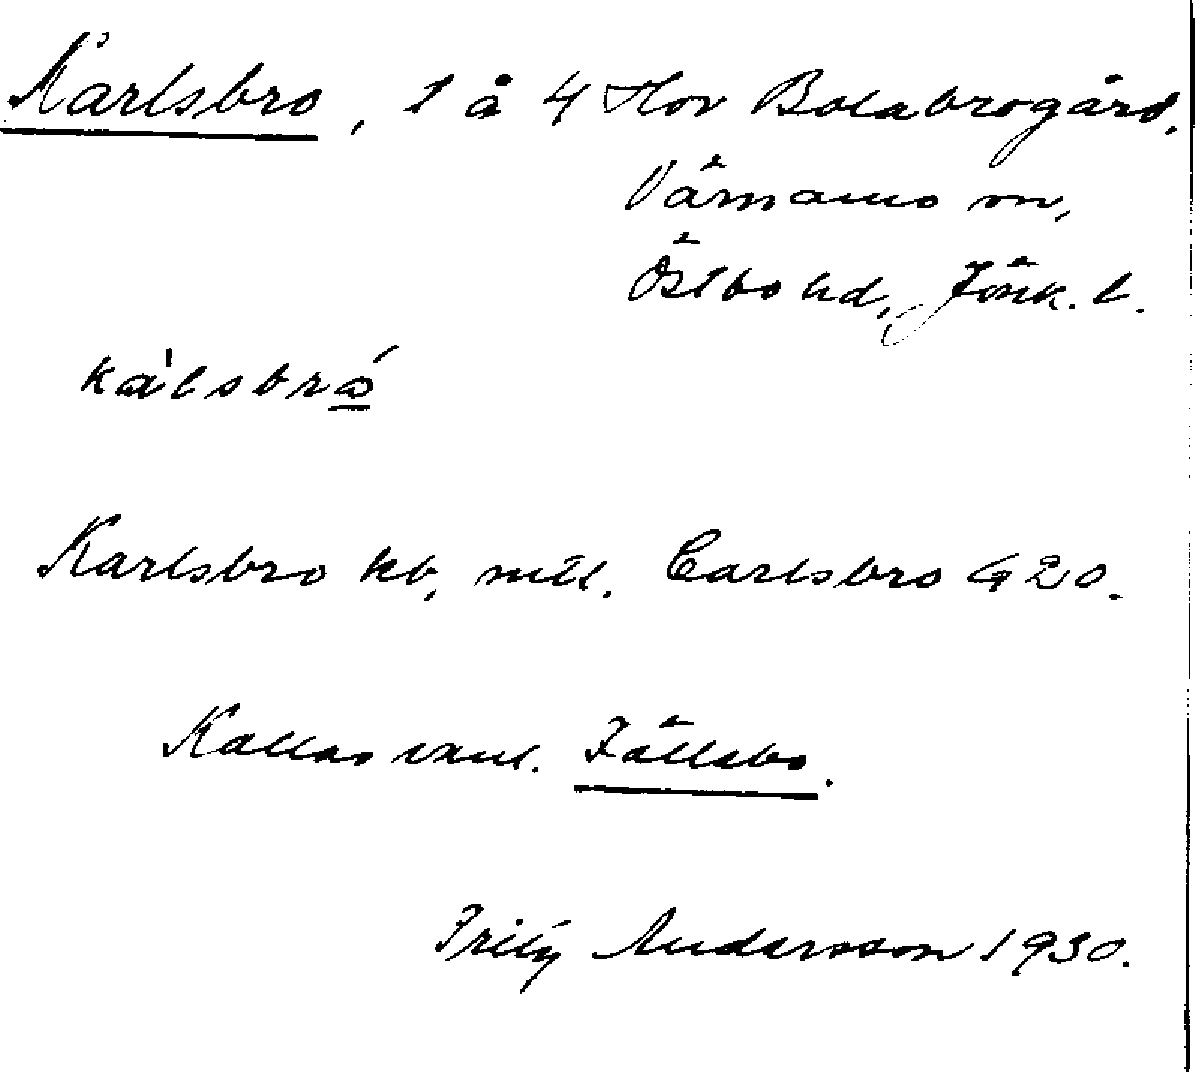 Karlsbro, 1 å 4 Hov Bolabrogård,
Värnamo sn,
Östbo hd, Jönk. l.
Karlsbro kb, mtl. Carlsbro G 20.
Kallas vanl. Fällsbo.
Fritz Andersson 1930.